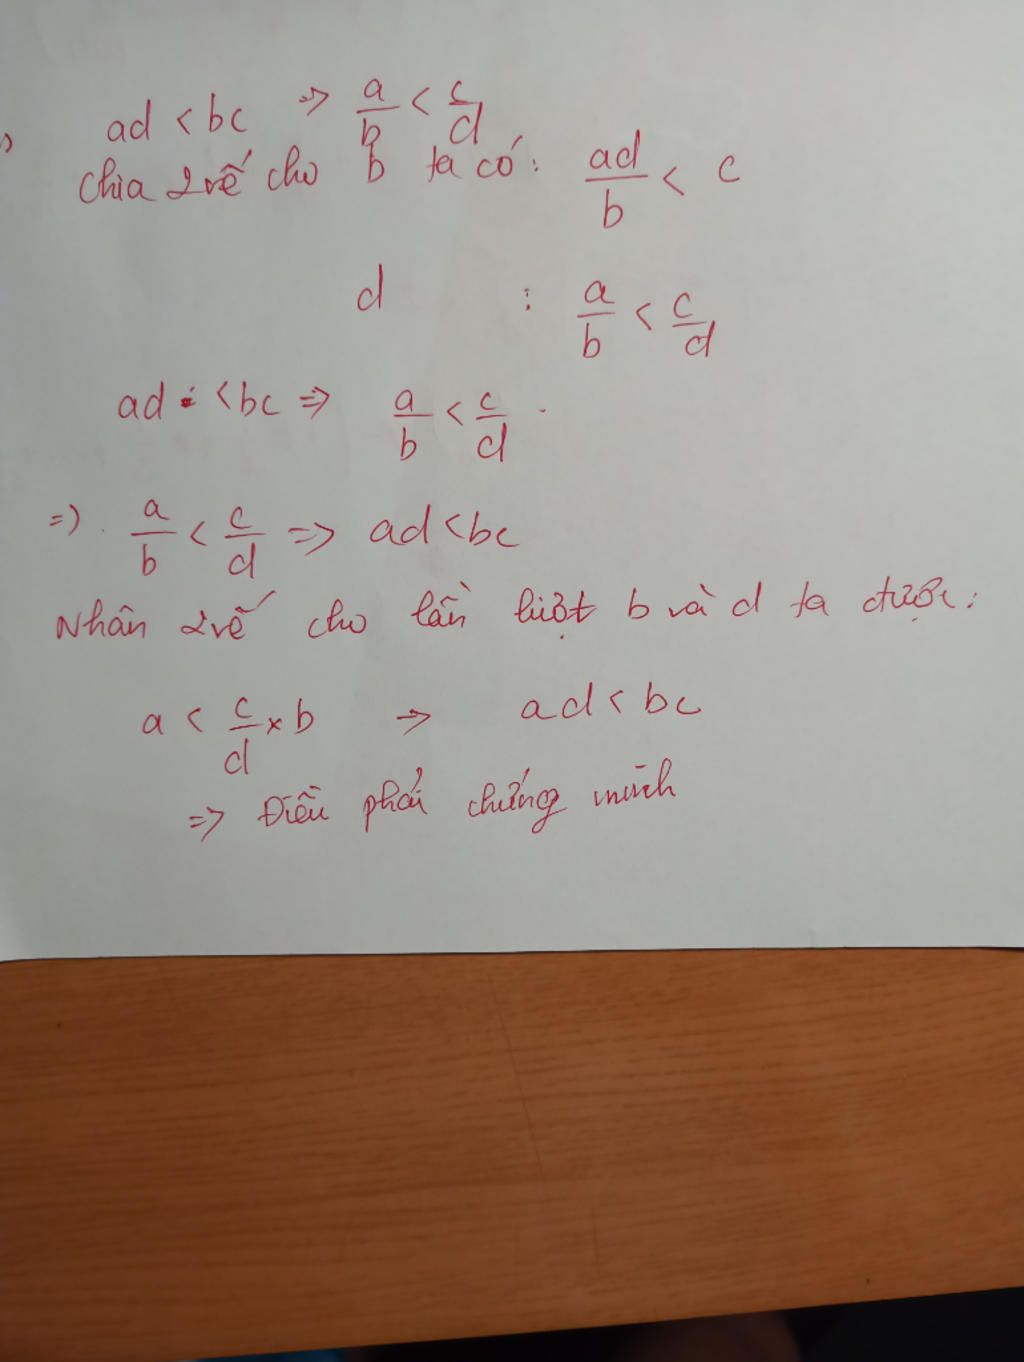 ad < bc => a/b < c/d
Chia 2 vế cho b ta có: ad/b < c
d : a/b < c/d
ad < bc => a/b < c/d .
=) . a/b < c/d => ad < bc
Nhân 2 vế cho lần lượt b và d ta được:
a < c/d × b => ad < bc
=> Điều phải chứng minh